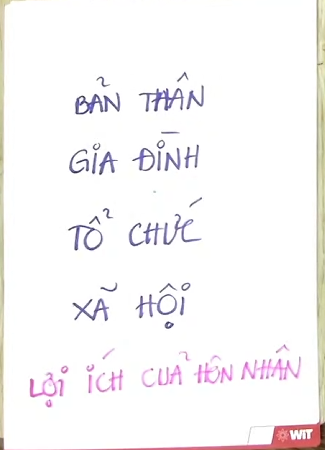 BẢN THÂN
GIA ĐÌNH
TỔ CHỨC
XÃ HỘI
LỢI ÍCH CUẢ HÔN NHÂN
WIT